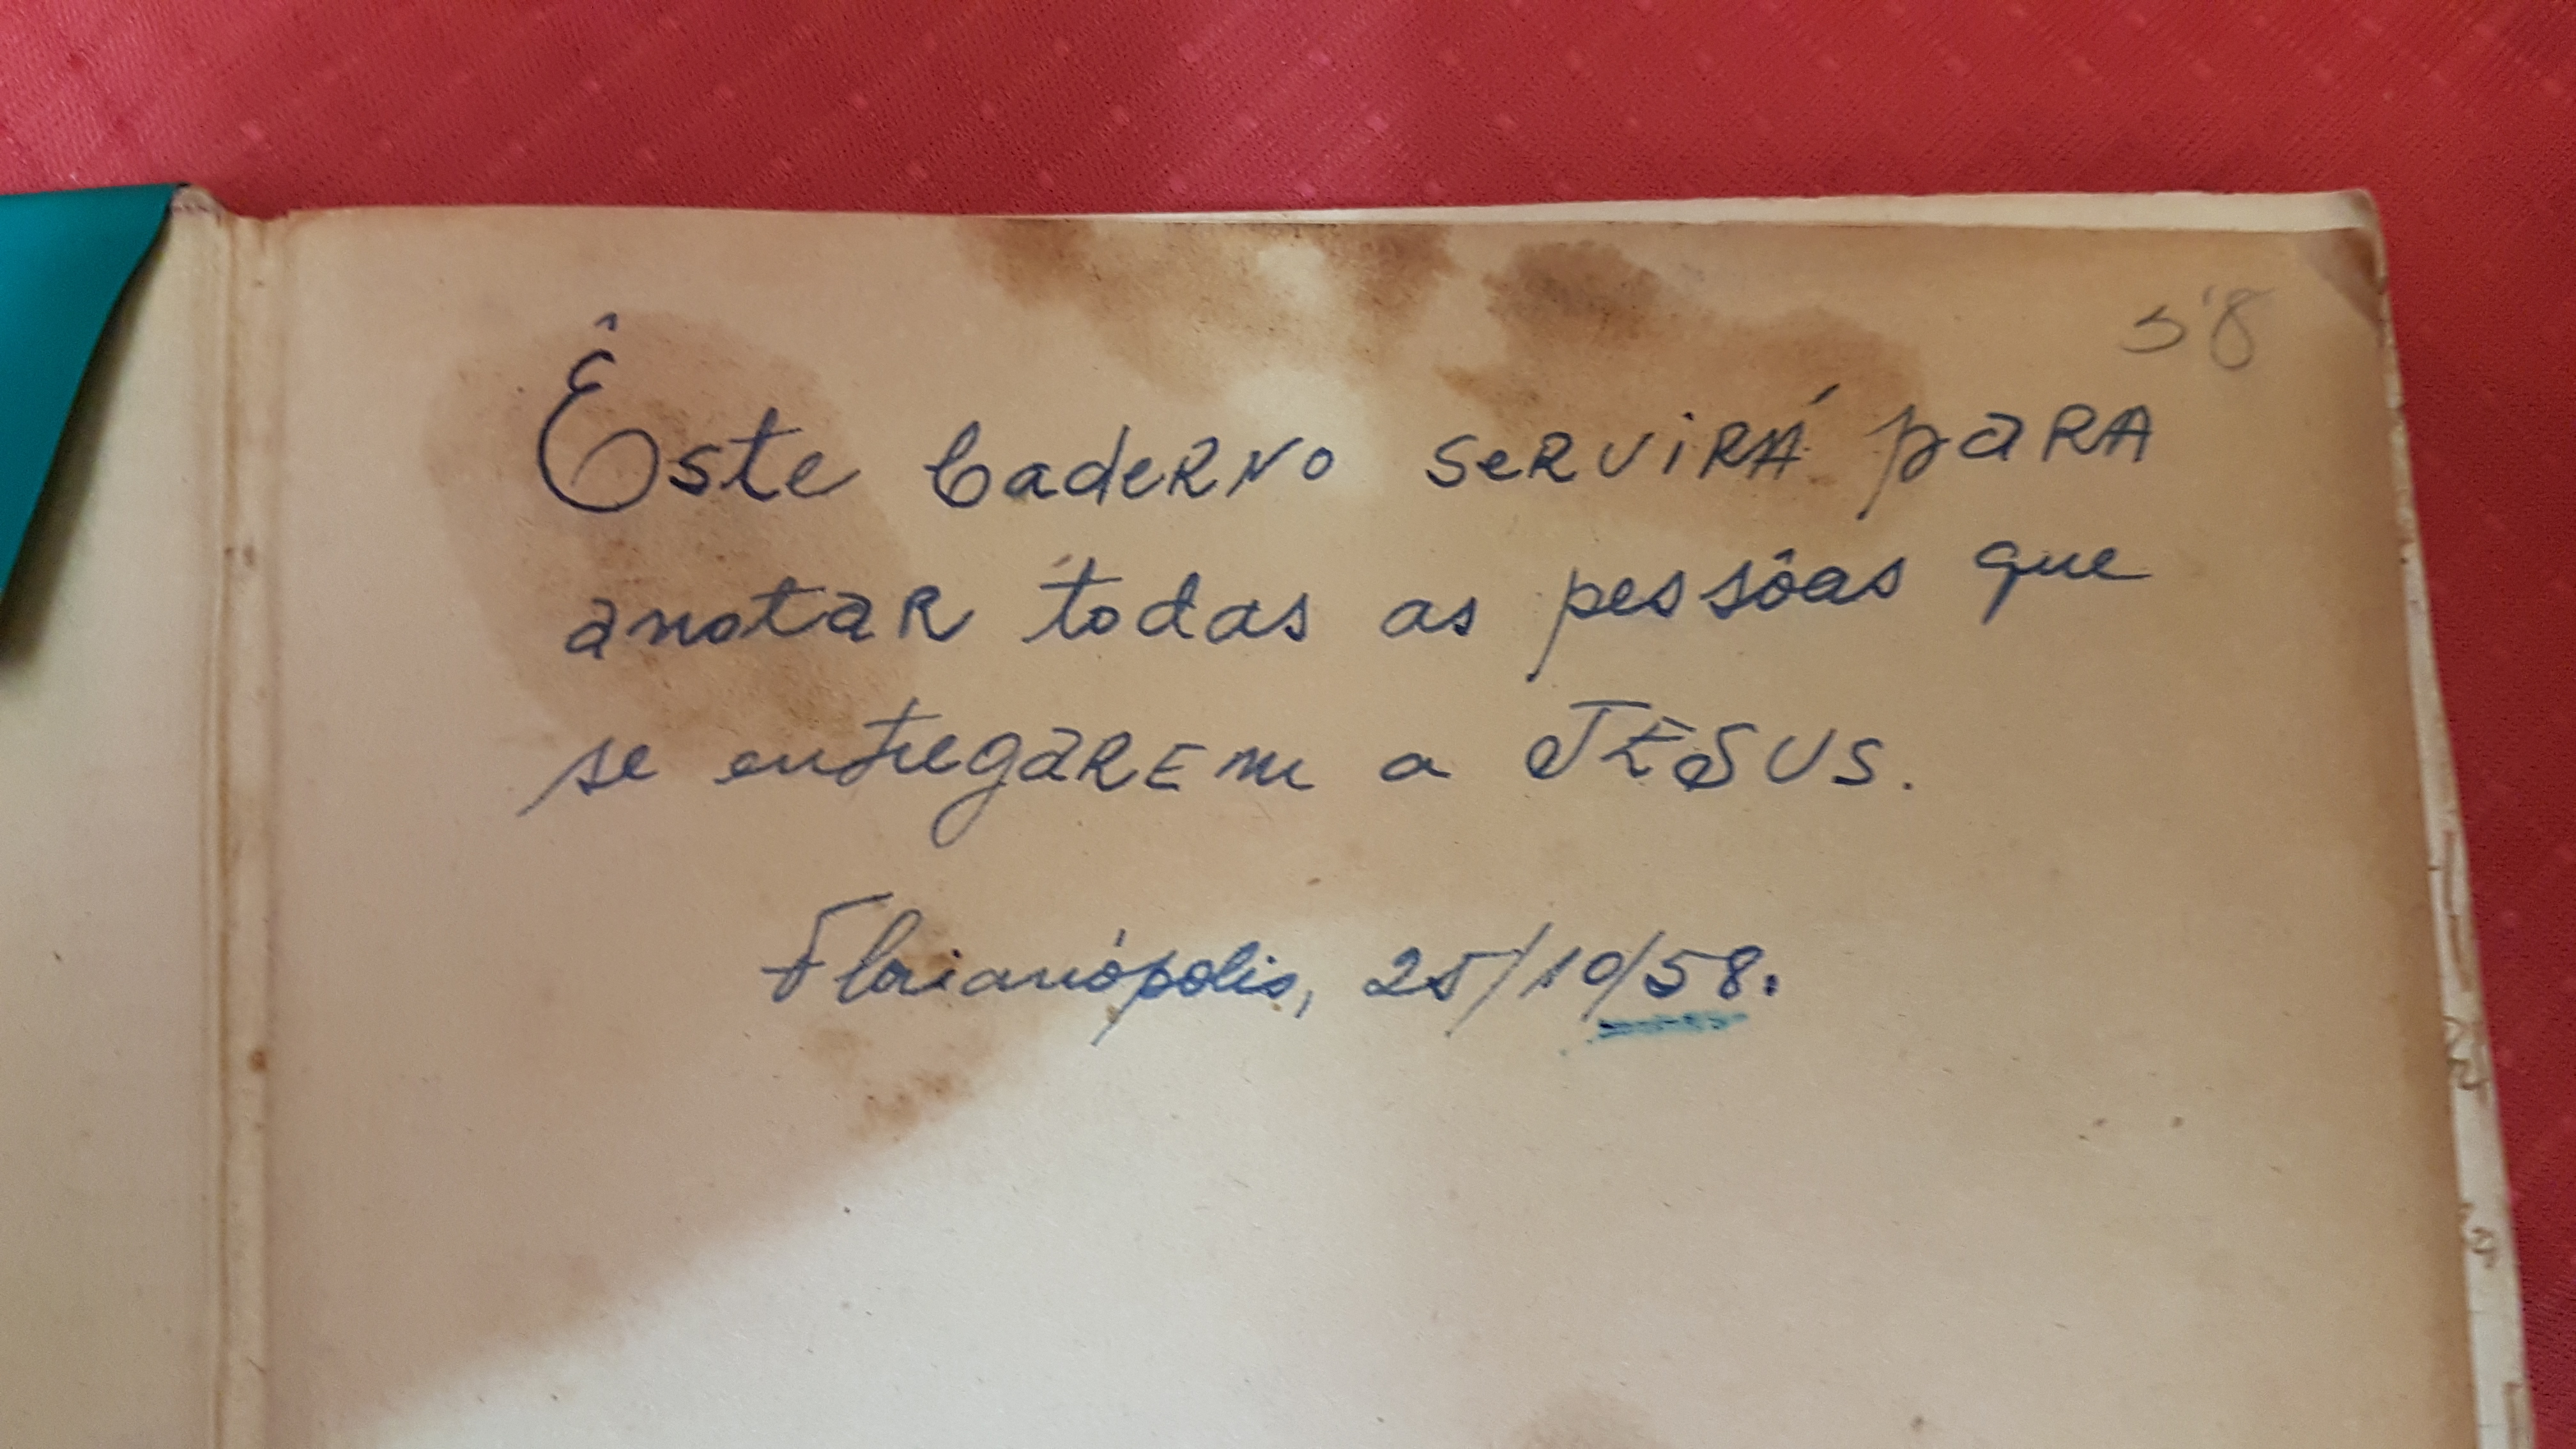 58
Êste Caderno servirá para
anotar todas as pessôas que
se entregarem a JESUS.
Florianópolis, 25/10/58.